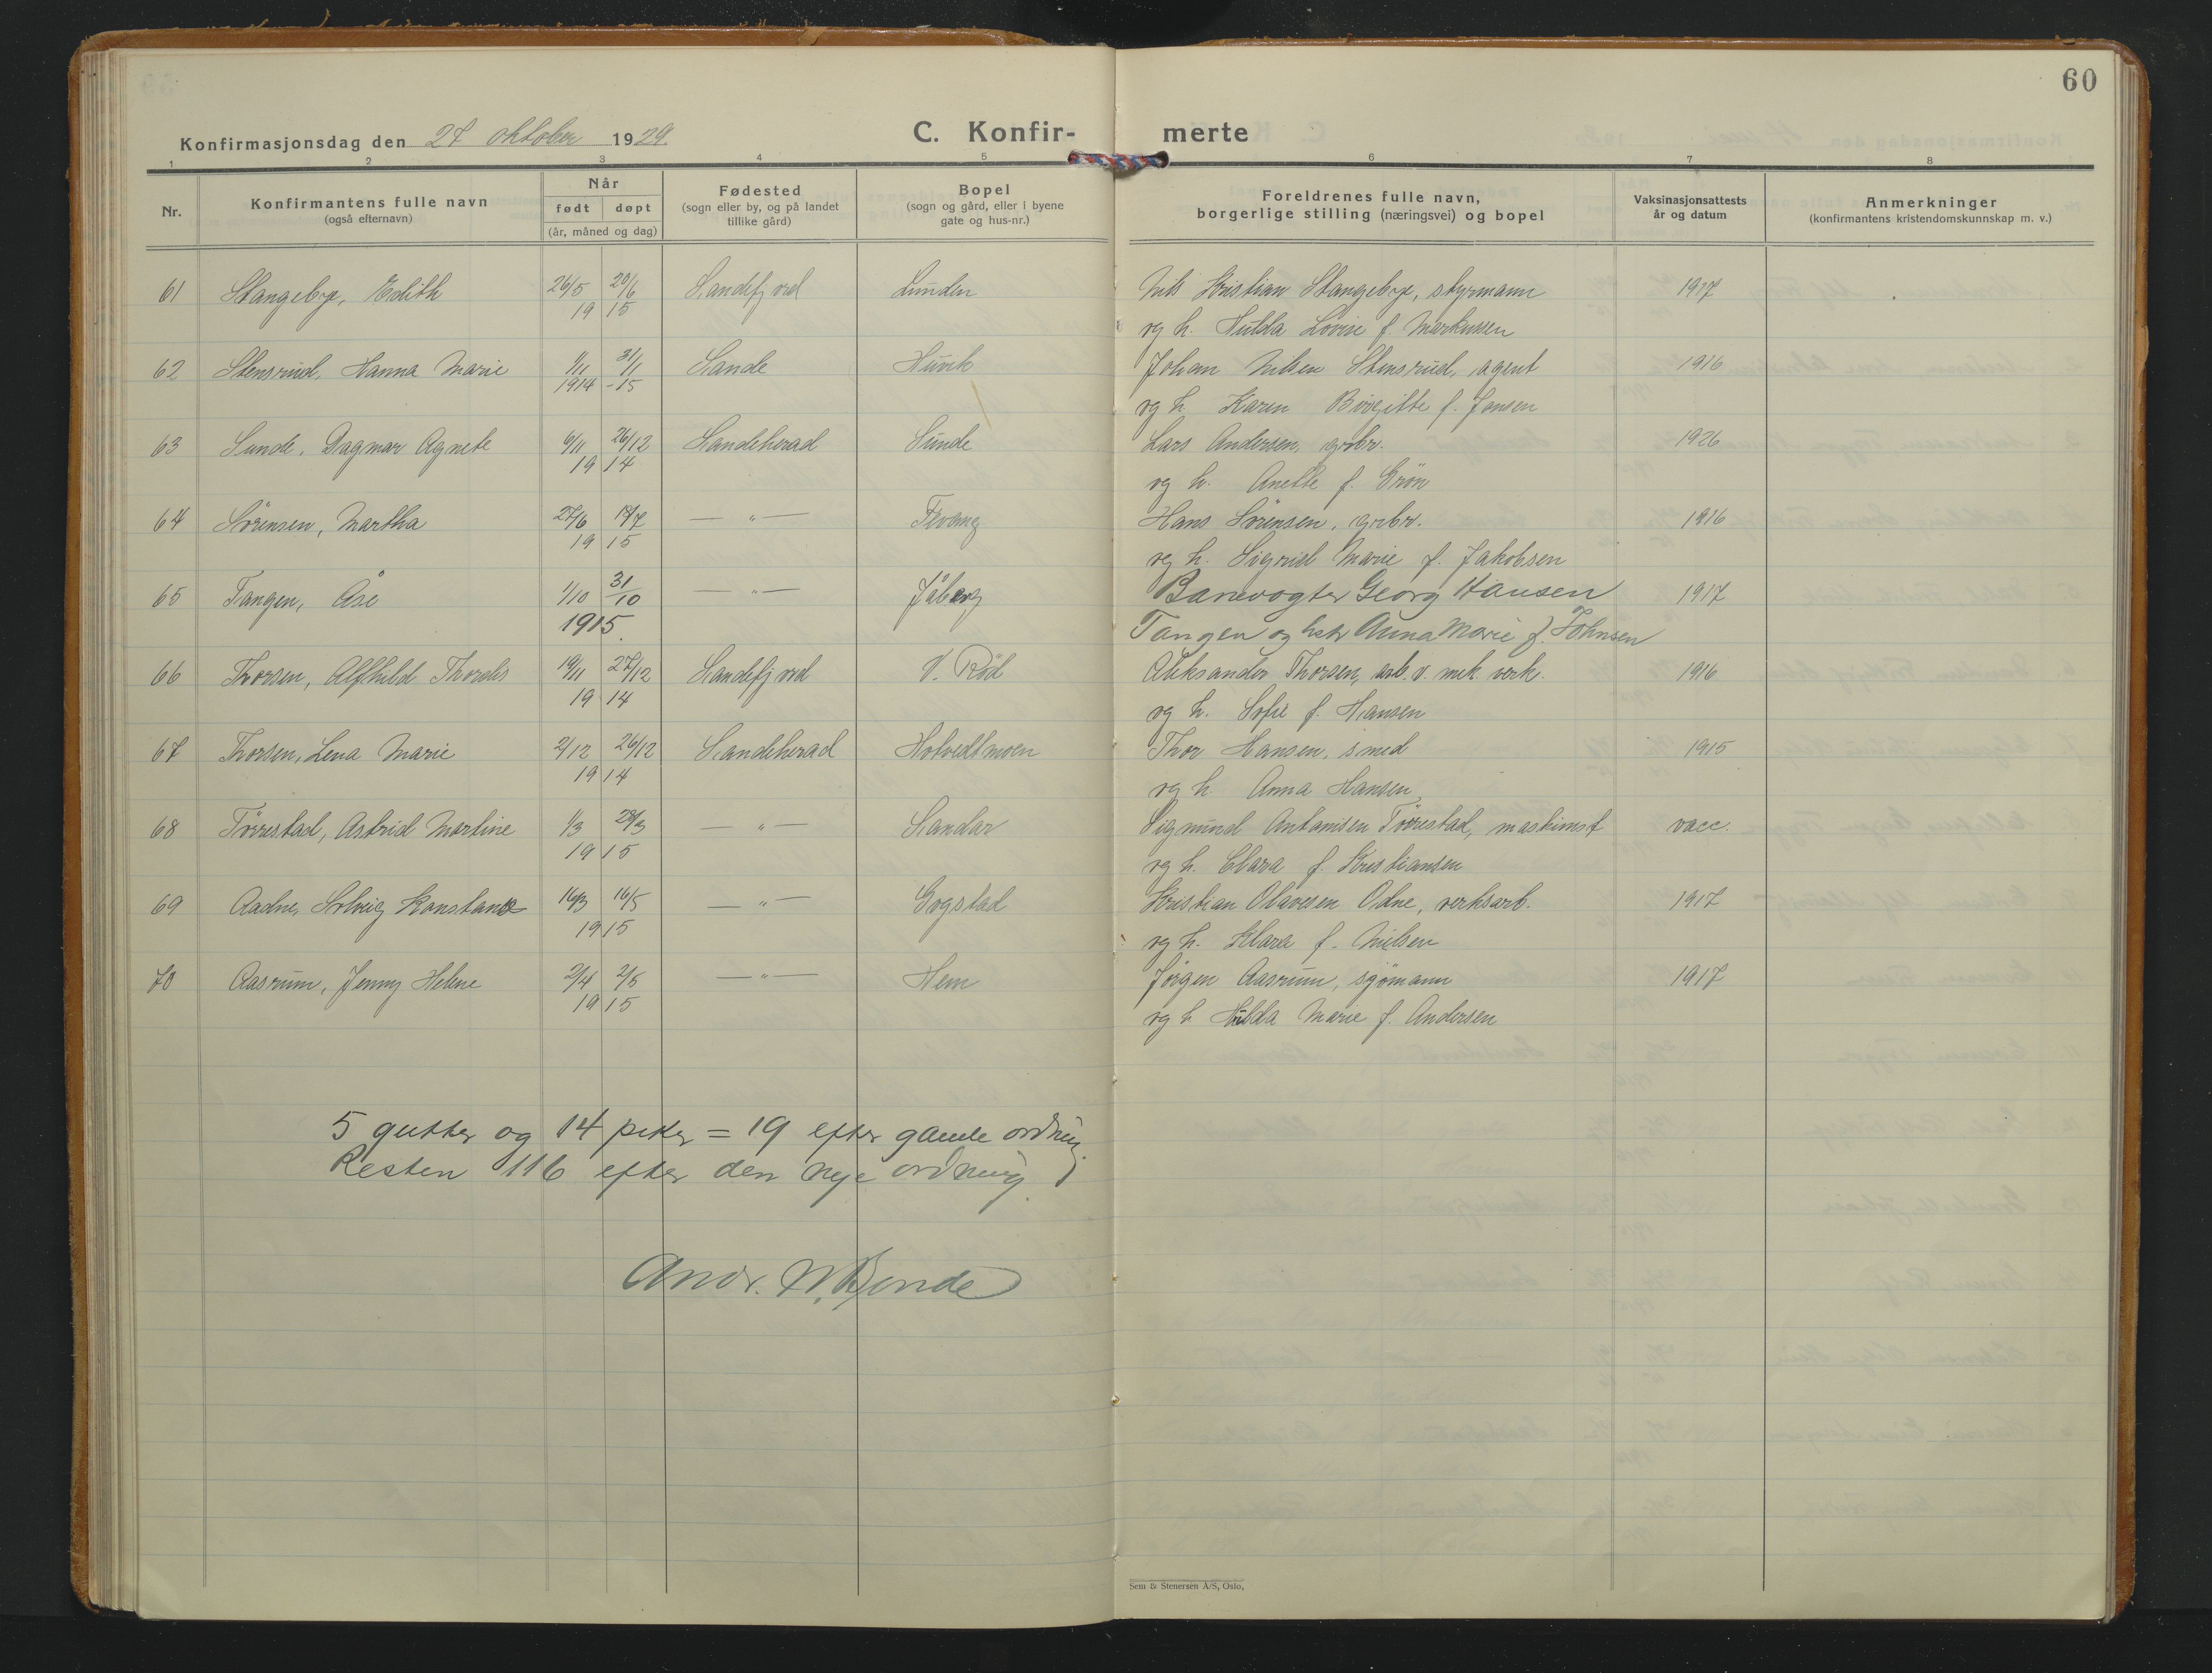 60
Konfirmasjonsdag den 27 oktober 1929.
C. Konfir- merte
1 2 3 4 5 6 7 8
Nr.
Konfirmantens fulle navn
(også efternavn)
Når
født døpt
(år, måned og dag)
Fødested
(sogn eller by, og på landet
tillike gård)
Bopel
(sogn og gård, eller i byene
gate og hus-nr.)
Foreldrenes fulle navn,
borgerlige stilling (næringsvei) og bopel
Vaksinasjonsattests
år og datum
Anmerkninger
(konfirmantens kristendomskunnskap m. v.)
61 Stangebye, Edith 26/5 20/6 Sandefjord Lunden Nils Kristian Stangebye, styrmann 1917
19 15 og h. Hulda Lovise f. Markussen
62 Stensrud, Hanna Marie 1/11 31/1 Sande Huvik Johan Nilsen Stensrud, agent 1916
1914 -15 og h. Karen Birgitte f. Jansen
63 Sunde, Dagmar Agnete 6/11 26/12 Sandeherad Sunde Lars Andersen, grbr. 1926
19 14 og h. Anette f. Grøn
64 Sörensen, Martha 27/6 18/7 — " — Fevang Hans Sörensen, grbr. 1916
19 15 og h. Sigrid Marie f. Jakobsen
65 Tangen, Åse 1/10 31/10 — " — Jåberg Banevogter Georg Hansen 1917
1915. Tangen og hstr Anna Marie f. Johnsen
66 Thorsen, Alfhild Thordis 19/11 27/12 Sandefjord V. Röd Aleksander Thorsen, arb. v. mek. verk. 1916
19 14 og h. Sofie f. Hansen
67 Thorsen, Lena Marie 2/12 26/12 Sandeherad Hotvedtmoen Thor Hansen, smed 1915
19 14 og h. Anna Hansen
68 Törrestad, Astrid Martine 1/3 28/3 — " — Sandar Sigmund Antonisen Törrestad, maskinist vacc.
19 15 og h. Clara f. Kristiansen
69 Aadne, Solveig Konstanse 16/3 16/5 — " — Gogstad Kristian Olavesen Odne, verksarb. 1917
19 15 og h. Klara f. Nielsen
70 Aasrum, Jenny Helene 2/4 2/5 — " — Hem Jörgen Aasrum, sjömann 1917
19 15 og h Hulda Marie f. Andersen
5 gutter og 14 piker = 19 efter gamle ordning.
Resten 116 efter den nye ordning.
Andr. N. Bonde
Sem & Stenersen A/S, Oslo.